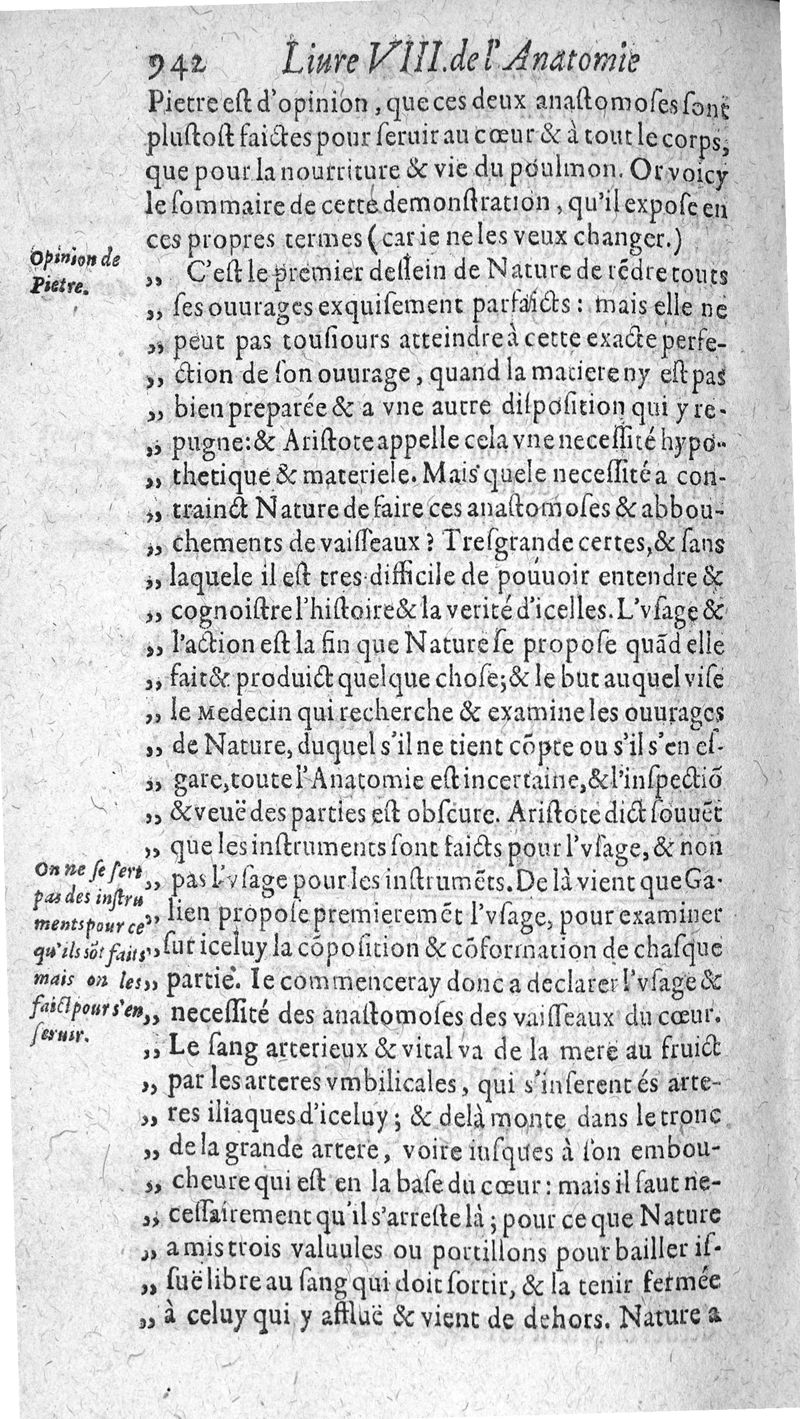 942 Liure VIII. de l'Anatomie
Pietre est d'opinion, que ces deux anastomoses sont
plustost faictes pour seruir au cœur & à tout le corps,
que pour la nourriture & vie du poulmon. Or voicy
le sommaire de cette demonstration, qu'il expose en
ces propres termes (car ie ne les veux changer.)
Opinion de
Pietre.
„ C'est le premier dessein de Nature de rẽdre touts
„ ses ouurages exquisement parfaicts: mais elle ne
„ peut pas tousiours atteindre à cette exacte perfe-
„ ction de son ouurage, quand la matiere ny est pas
„ bien preparée & a vne autre disposition qui y re-
„ pugne: & Aristote appelle cela vne necessité hypo-
„ thetique & materiele. Mais quele necessité a con-
„ trainct Nature de faire ces anastomoses & abbou-
„ chements de vaisseaux? Tresgrande certes, & sans
„ laquele il est tres-difficile de pouuoir entendre &
„ cognoistre l'histoire & la verité d'icelles. L'vsage &
„ l'action est la fin que Nature se propose quãd elle
„ fait & produict quelque chose; & le but auquel vise
„ le Medecin qui recherche & examine les ouurages
„ de Nature, duquel s'il ne tient cõpte ou s'il s'en es-
„ gare, toute l'Anatomie est incertaine, & l'inspectiõ
„ & veuë des parties est obscure. Aristote dict souuẽt
„ que les instruments sont faicts pour l'vsage, & non
„ pas l'vsage pour les instrumẽts. De là vient que Ga-
„ lien propose premieremẽt l'vsage, pour examiner
„ sur iceluy la cõposition & cõformation de chasque
„ partie. Ie commenceray donc a declarer l'vsage &
„ necessité des anastomoses des vaisseaux du cœur.
On ne se sert
pas des instru
ments pour ce
qu'ils sõt faits
mais on les
faict pour s'en
seruir.
„ Le sang arterieux & vital va de la mere au fruict
„ par les arteres vmbilicales, qui s'inserent és arte-
„ res iliaques d'iceluy; & delà monte dans le tronc
„ de la grande artere, voire iusques à son embou-
„ cheure qui est en la base du cœur: mais il faut ne-
„ cessairement qu'il s'arreste là; pour ce que Nature
„ a mis trois valuules ou portillons pour bailler is-
„ suë libre au sang qui doit sortir, & la tenir fermée
„ à celuy qui y affluë & vient de dehors. Nature a